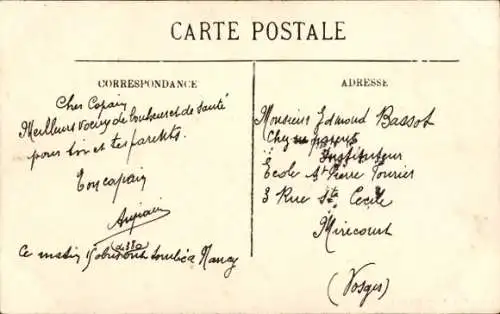 CARTE POSTALE
CORRESPONDANCE
Cher Copain
Meilleurs voeux de bonheur et de santé
pour toi et tes parents.
Ton copain
Ce matin obus sont tombés à Nancy
(de 380)
ADRESSE
Monsieur Edmond Bassot
Chez parents
Instituteur
Ecole St Pierre Fourier
3 Rue Ste Cecile
Mirecourt
(Vosges)